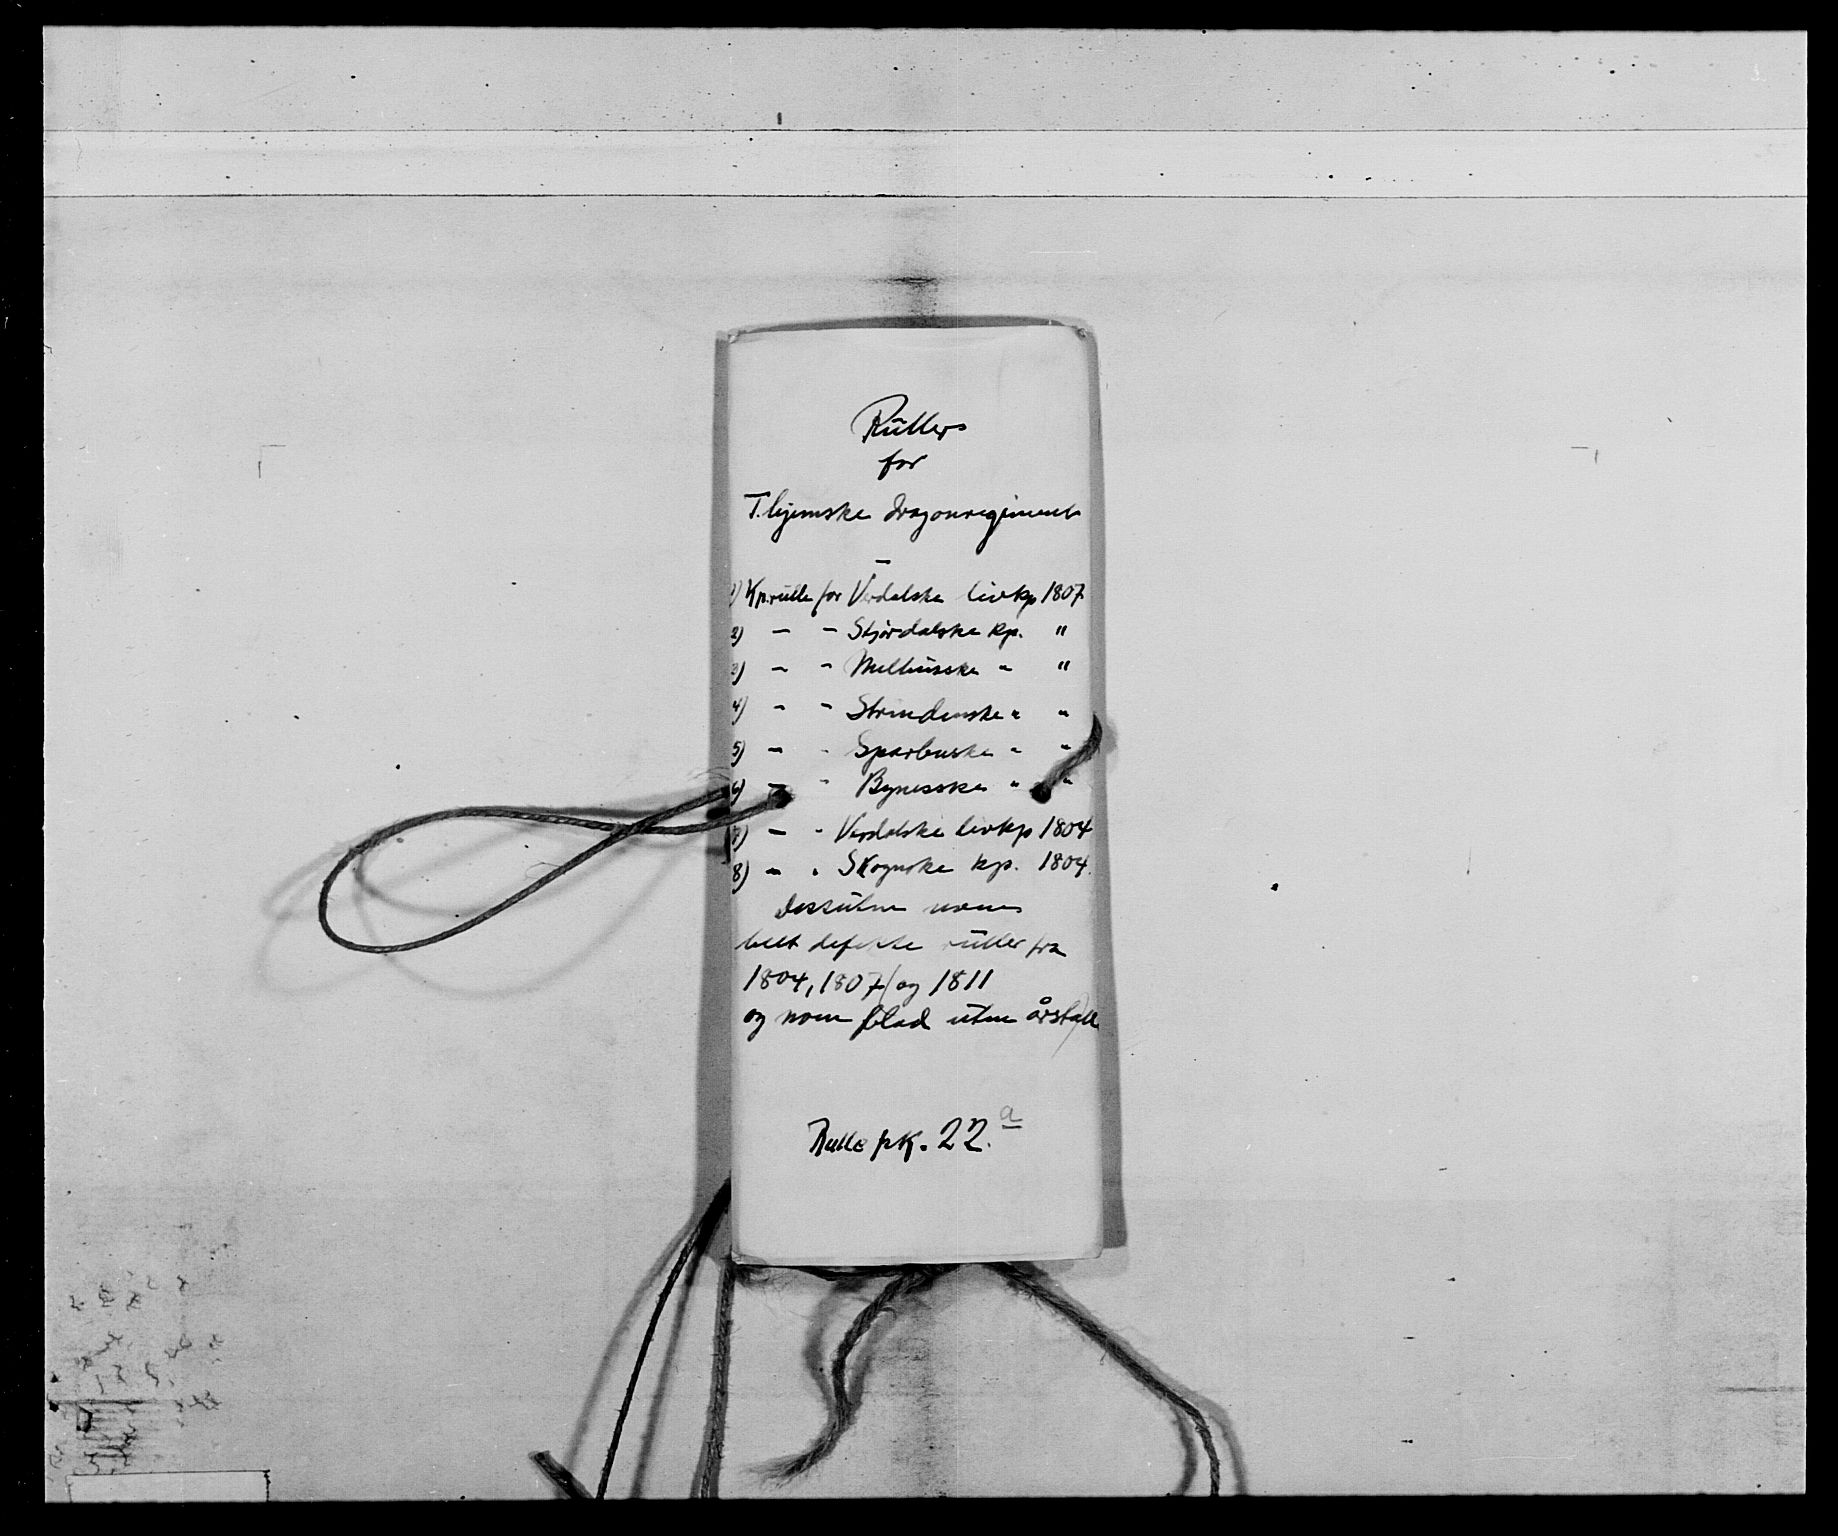 Ruller
for
T.hjemske dragonregiment
—
1) Kp.rulle for Verdalske livkp 1807
2) — — Stjørdalske kp. "
3) — — Melhusske " "
4) — — Strindenske " "
5) — — Sparbuske " "
6) — " Bynesske " "
7) — " Verdalske livkp 1804
8) — " Skognske kp. 1804
dessuten noen
helt defekte ruller fra
1804, 1807 (og 1811
og noen blad uten årstall)
Rulle pk. 22.a